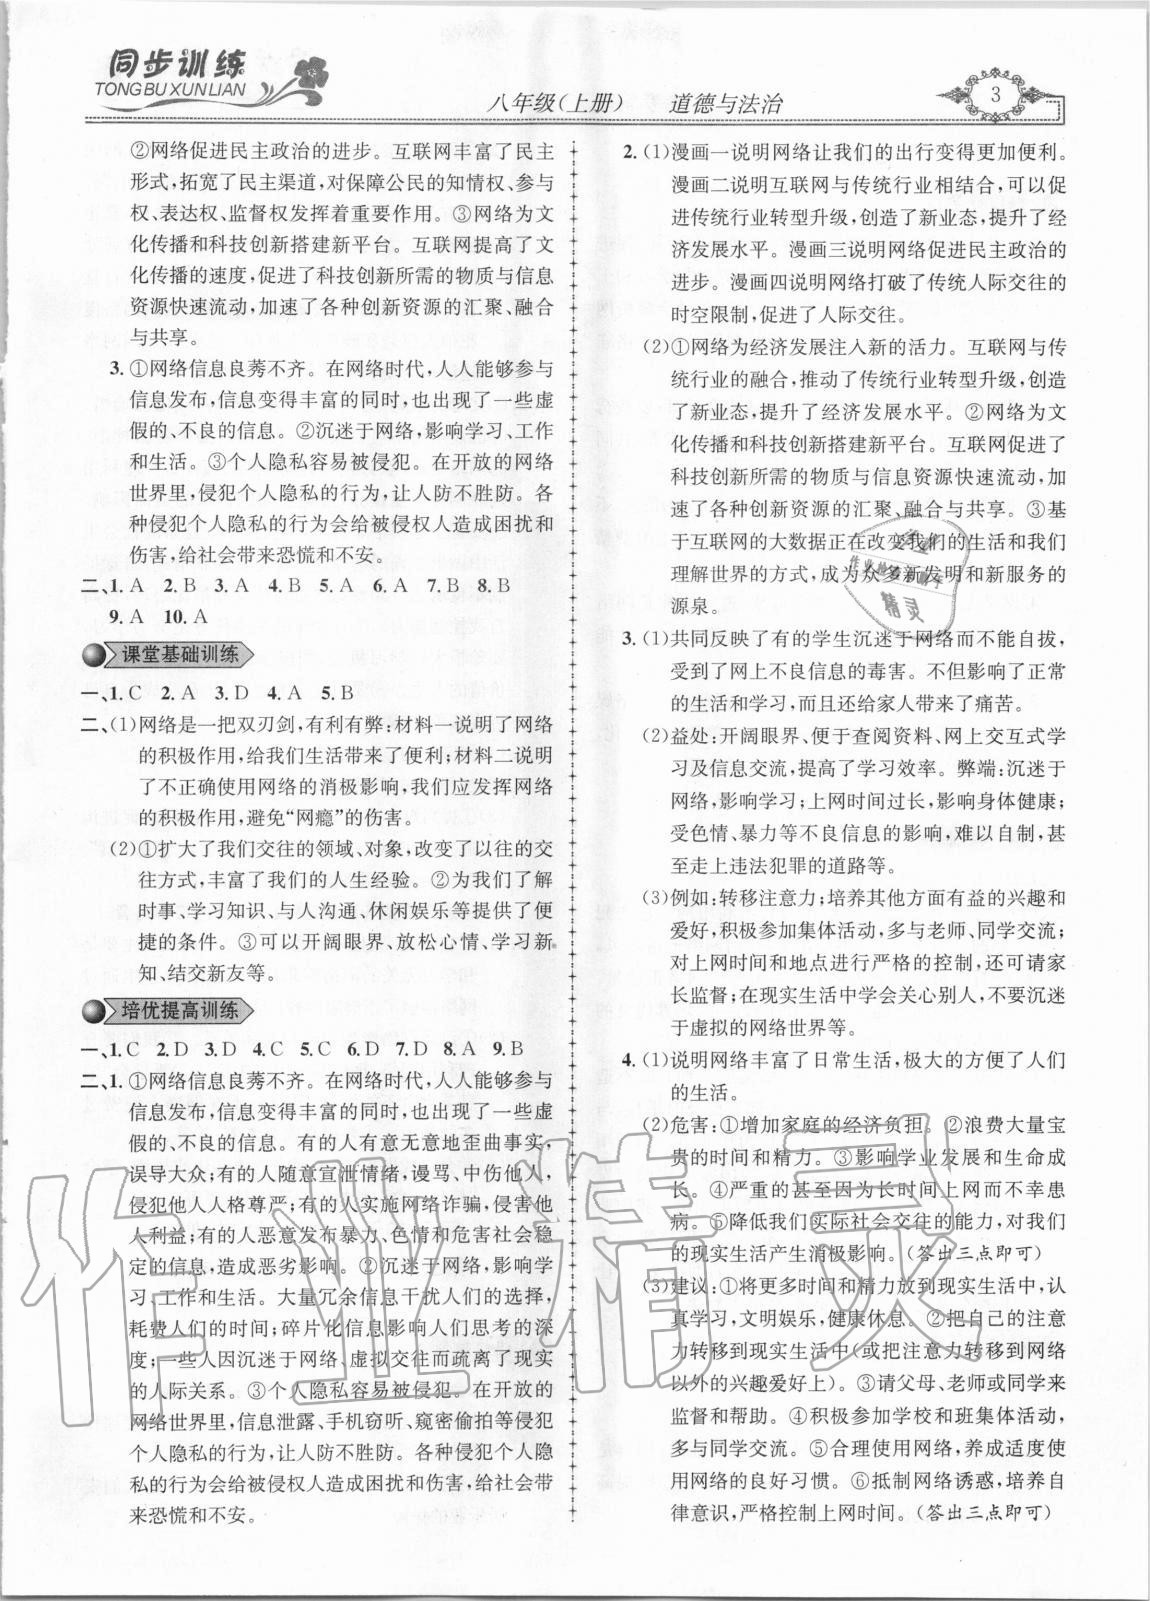 同步训练
TONGBUXUNLIAN
八年级(上册) 道德与法治
3
②网络促进民主政治的进步。互联网丰富了民主
形式,拓宽了民主渠道,对保障公民的知情权、参与
权、表达权、监督权发挥着重要作用。③网络为文
化传播和科技创新搭建新平台。互联网提高了文
化传播的速度,促进了科技创新所需的物质与信息
资源快速流动,加速了各种创新资源的汇聚、融合
与共享。
3. ①网络信息良莠不齐。在网络时代,人人能够参与
信息发布,信息变得丰富的同时,也出现了一些虚
假的、不良的信息。②沉迷于网络,影响学习、工作
和生活。③个人隐私容易被侵犯。在开放的网络
世界里,侵犯个人隐私的行为,让人防不胜防。各
种侵犯个人隐私的行为会给被侵权人造成困扰和
伤害,给社会带来恐慌和不安。
二、1. A 2. B 3. A 4. B 5. A 6. A 7. B 8. B
9. A 10. A
课堂基础训练
一、1. C 2. A 3. D 4. A 5. B
二、(1)网络是一把双刃剑,有利有弊:材料一说明了网络
的积极作用,给我们生活带来了便利;材料二说明
了不正确使用网络的消极影响,我们应发挥网络
的积极作用,避免“网瘾”的伤害。
(2)①扩大了我们交往的领域、对象,改变了以往的交
往方式,丰富了我们的人生经验。②为我们了解
时事、学习知识、与人沟通、休闲娱乐等提供了便
捷的条件。③可以开阔眼界、放松心情、学习新
知、结交新友等。
培优提高训练
一、1. C 2. D 3. D 4. C 5. C 6. D 7. D 8. A 9. B
二、1. ①网络信息良莠不齐。在网络时代,人人能够参与
信息发布,信息变得丰富的同时,也出现了一些虚
假的、不良的信息。有的人有意无意地歪曲事实,
误导大众;有的人随意宣泄情绪,谩骂、中伤他人,
侵犯他人人格尊严;有的人实施网络诈骗,侵害他
人利益;有的人恶意发布暴力、色情和危害社会稳
定的信息,造成恶劣影响。②沉迷于网络,影响学
习、工作和生活。大量冗余信息干扰人们的选择,
耗费人们的时间;碎片化信息影响人们思考的深
度;一些人因沉迷于网络、虚拟交往而疏离了现实
的人际关系。③个人隐私容易被侵犯。在开放的
网络世界里,信息泄露、手机窃听、窥密偷拍等侵犯
个人隐私的行为,让人防不胜防。各种侵犯个人隐
私的行为会给被侵权人造成困扰和伤害,给社会带
来恐慌和不安。
2. (1)漫画一说明网络让我们的出行变得更加便利。
漫画二说明互联网与传统行业相结合,可以促
进传统行业转型升级,创造了新业态,提升了经
济发展水平。漫画三说明网络促进民主政治的
进步。漫画四说明网络打破了传统人际交往的
时空限制,促进了人际交往。
(2)①网络为经济发展注入新的活力。互联网与传
统行业的融合,推动了传统行业转型升级,创造
了新业态,提升了经济发展水平。②网络为文
化传播和科技创新搭建新平台。互联网促进了
科技创新所需的物质与信息资源快速流动,加
速了各种创新资源的汇聚、融合与共享。③基
于互联网的大数据正在改变我们的生活和我们
理解世界的方式,成为众多新发明和新服务的
源泉。
3. (1)共同反映了有的学生沉迷于网络而不能自拔,
受到了网上不良信息的毒害。不但影响了正常
的生活和学习,而且还给家人带来了痛苦。
(2)益处:开阔眼界、便于查阅资料、网上交互式学
习及信息交流,提高了学习效率。弊端:沉迷于
网络,影响学习;上网时间过长,影响身体健康;
受色情、暴力等不良信息的影响,难以自制,甚
至走上违法犯罪的道路等。
(3)例如:转移注意力;培养其他方面有益的兴趣和
爱好,积极参加集体活动,多与老师、同学交流;
对上网时间和地点进行严格的控制,还可请家
长监督;在现实生活中学会关心别人,不要沉迷
于虚拟的网络世界等。
4. (1)说明网络丰富了日常生活,极大的方便了人们
的生活。
(2)危害:①增加家庭的经济负担。②浪费大量宝
贵的时间和精力。③影响学业发展和生命成
长。④严重的甚至因为长时间上网而不幸患
病。⑤降低我们实际社会交往的能力,对我们
的现实生活产生消极影响。(答出三点即可)
(3)建议:①将更多时间和精力放到现实生活中,认
真学习,文明娱乐,健康休息。②把自己的注意
力转移到现实生活中(或把注意力转移到网络
以外的兴趣爱好上)。③请父母、老师或同学来
监督和帮助。④积极参加学校和班集体活动,
多与同学交流。⑤合理使用网络,养成适度使
用网络的良好习惯。⑥抵制网络诱惑,培养自
律意识,严格控制上网时间。(答出三点即可)
作业精灵
精灵